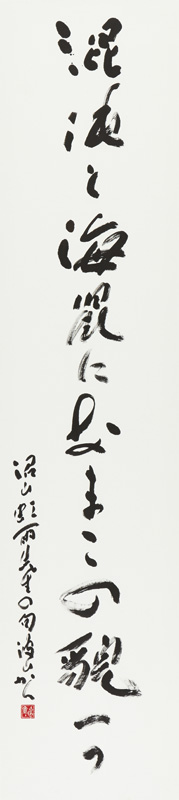 混沌と海になまこの貌一つ
沼山虹雨先生の句